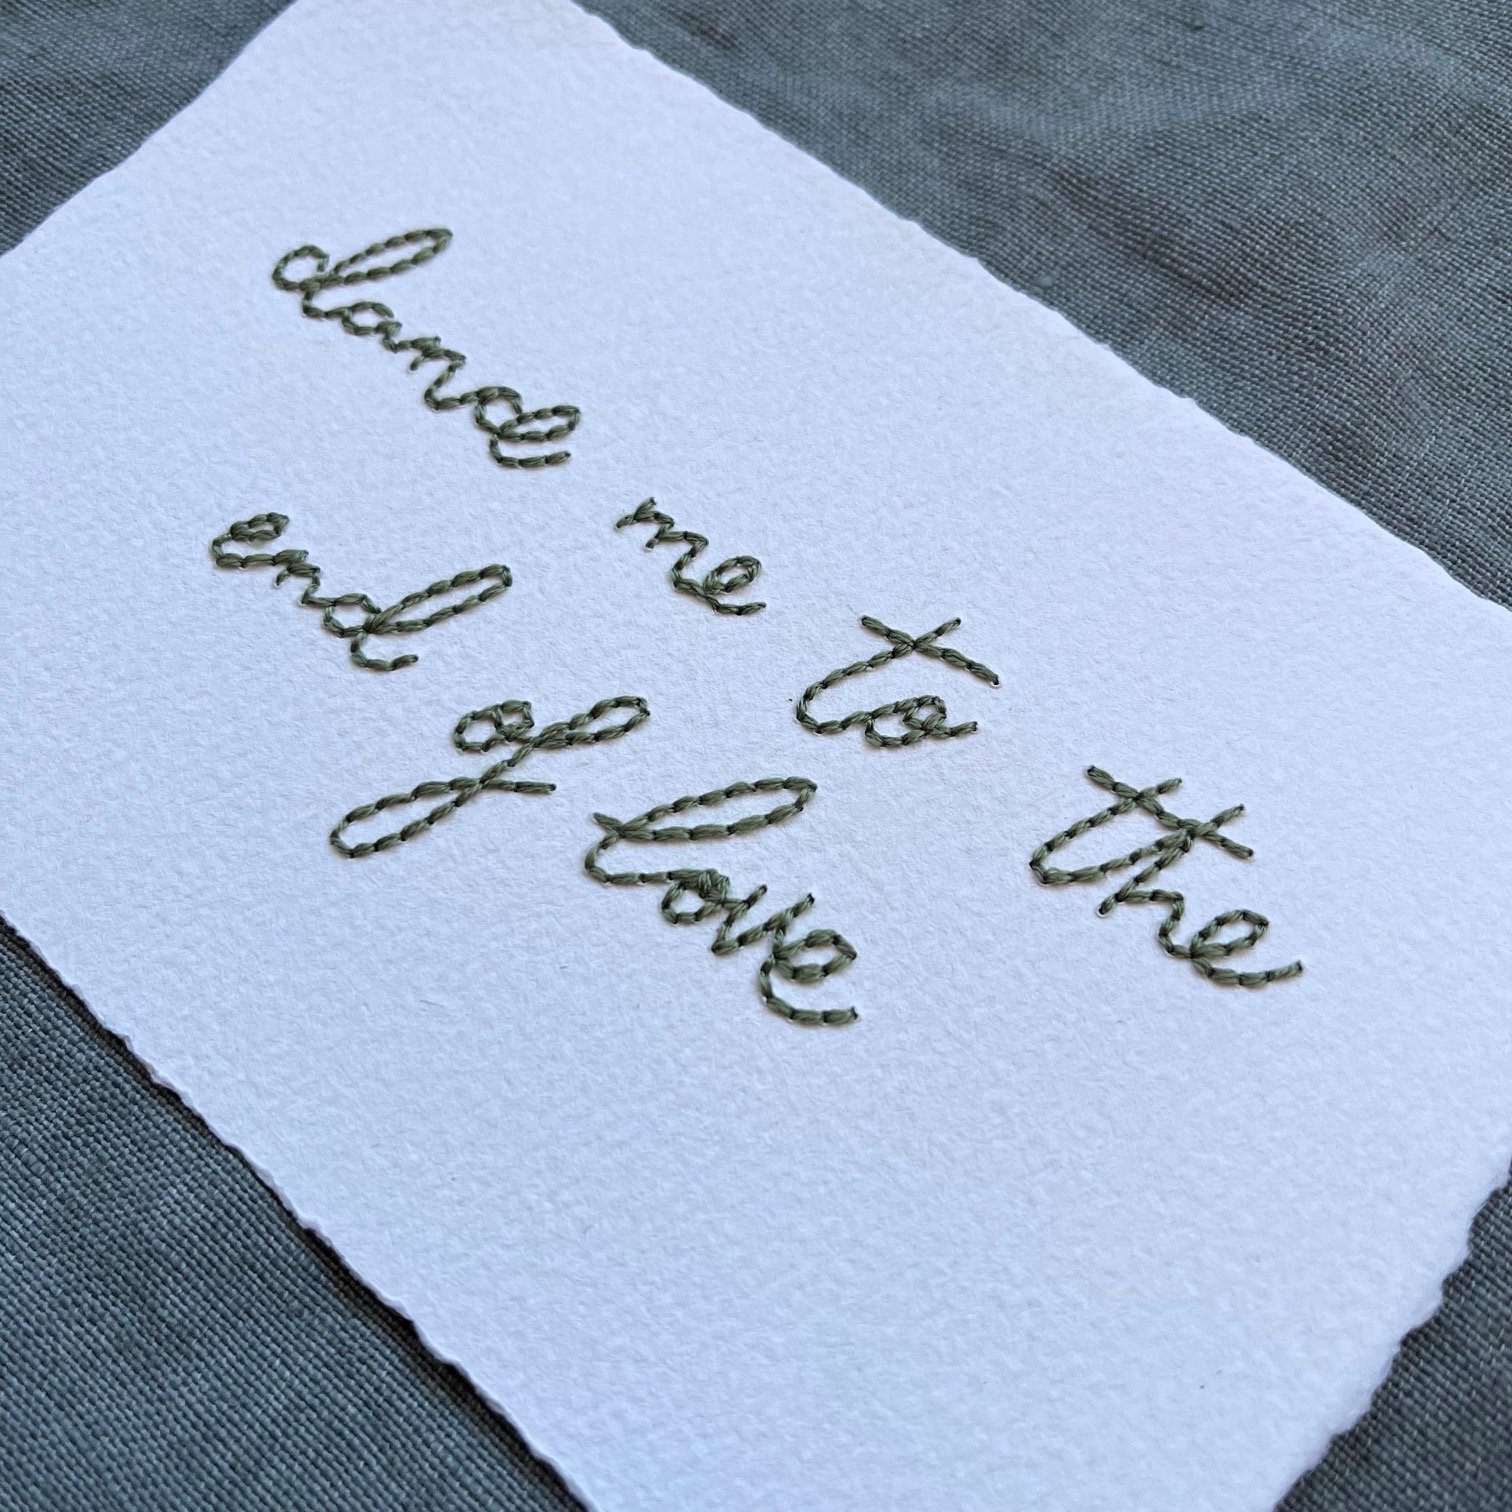 dance me to the
end of love